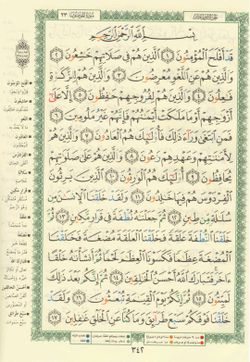 ٢٣
بِسْمِ ٱللَّهِ ٱلرَّحْمَٰنِ ٱلرَّحِيمِ
قَدْ أَفْلَحَ ٱلْمُؤْمِنُونَ ١ ٱلَّذِينَ هُمْ فِى صَلَاتِهِمْ خَٰشِعُونَ ٢
وَٱلَّذِينَ هُمْ عَنِ ٱللَّغْوِ مُعْرِضُونَ ٣ وَٱلَّذِينَ هُمْ لِلزَّكَوٰةِ
فَٰعِلُونَ ٤ وَٱلَّذِينَ هُمْ لِفُرُوجِهِمْ حَٰفِظُونَ ٥ إِلَّا عَلَىٰٓ
أَزْوَٰجِهِمْ أَوْ مَا مَلَكَتْ أَيْمَٰنُهُمْ فَإِنَّهُمْ غَيْرُ مَلُومِينَ ٦
فَمَنِ ٱبْتَغَىٰ وَرَآءَ ذَٰلِكَ فَأُو۟لَٰٓئِكَ هُمُ ٱلْعَادُونَ ٧ وَٱلَّذِينَ هُمْ
لِأَمَٰنَٰتِهِمْ وَعَهْدِهِمْ رَٰعُونَ ٨ وَٱلَّذِينَ هُمْ عَلَىٰ صَلَوَٰتِهِمْ
يُحَافِظُونَ ٩ أُو۟لَٰٓئِكَ هُمُ ٱلْوَٰرِثُونَ ١٠ ٱلَّذِينَ يَرِثُونَ
ٱلْفِرْدَوْسَ هُمْ فِيهَا خَٰلِدُونَ ١١ وَلَقَدْ خَلَقْنَا ٱلْإِنسَٰنَ مِن
سُلَٰلَةٍ مِّن طِينٍ ١٢ ثُمَّ جَعَلْنَٰهُ نُطْفَةً فِى قَرَارٍ مَّكِينٍ ١٣
ثُمَّ خَلَقْنَا ٱلنُّطْفَةَ عَلَقَةً فَخَلَقْنَا ٱلْعَلَقَةَ مُضْغَةً فَخَلَقْنَا
ٱلْمُضْغَةَ عِظَٰمًا فَكَسَوْنَا ٱلْعِظَٰمَ لَحْمًا ثُمَّ أَنشَأْنَٰهُ خَلْقًا
ءَاخَرَ فَتَبَارَكَ ٱللَّهُ أَحْسَنُ ٱلْخَٰلِقِينَ ١٤ ثُمَّ إِنَّكُم بَعْدَ ذَٰلِكَ
لَمَيِّتُونَ ١٥ ثُمَّ إِنَّكُمْ يَوْمَ ٱلْقِيَٰمَةِ تُبْعَثُونَ ١٦ وَلَقَدْ
خَلَقْنَا فَوْقَكُمْ سَبْعَ طَرَآئِقَ وَمَا كُنَّا عَنِ ٱلْخَلْقِ غَٰفِلِينَ ١٧
٣٤٢